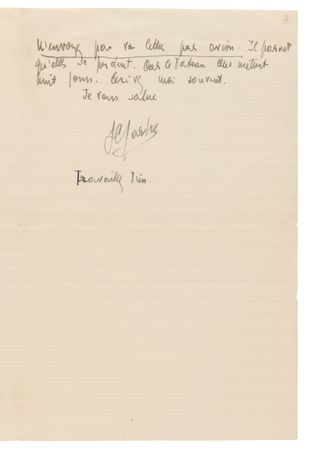 3
N'envoyez pas vos lettres par avion. Il paraît
qu'elles se perdent. Par le bateau elles mettent
huit jours. Écrivez moi souvent.
Je vous salue
Travaillez bien.